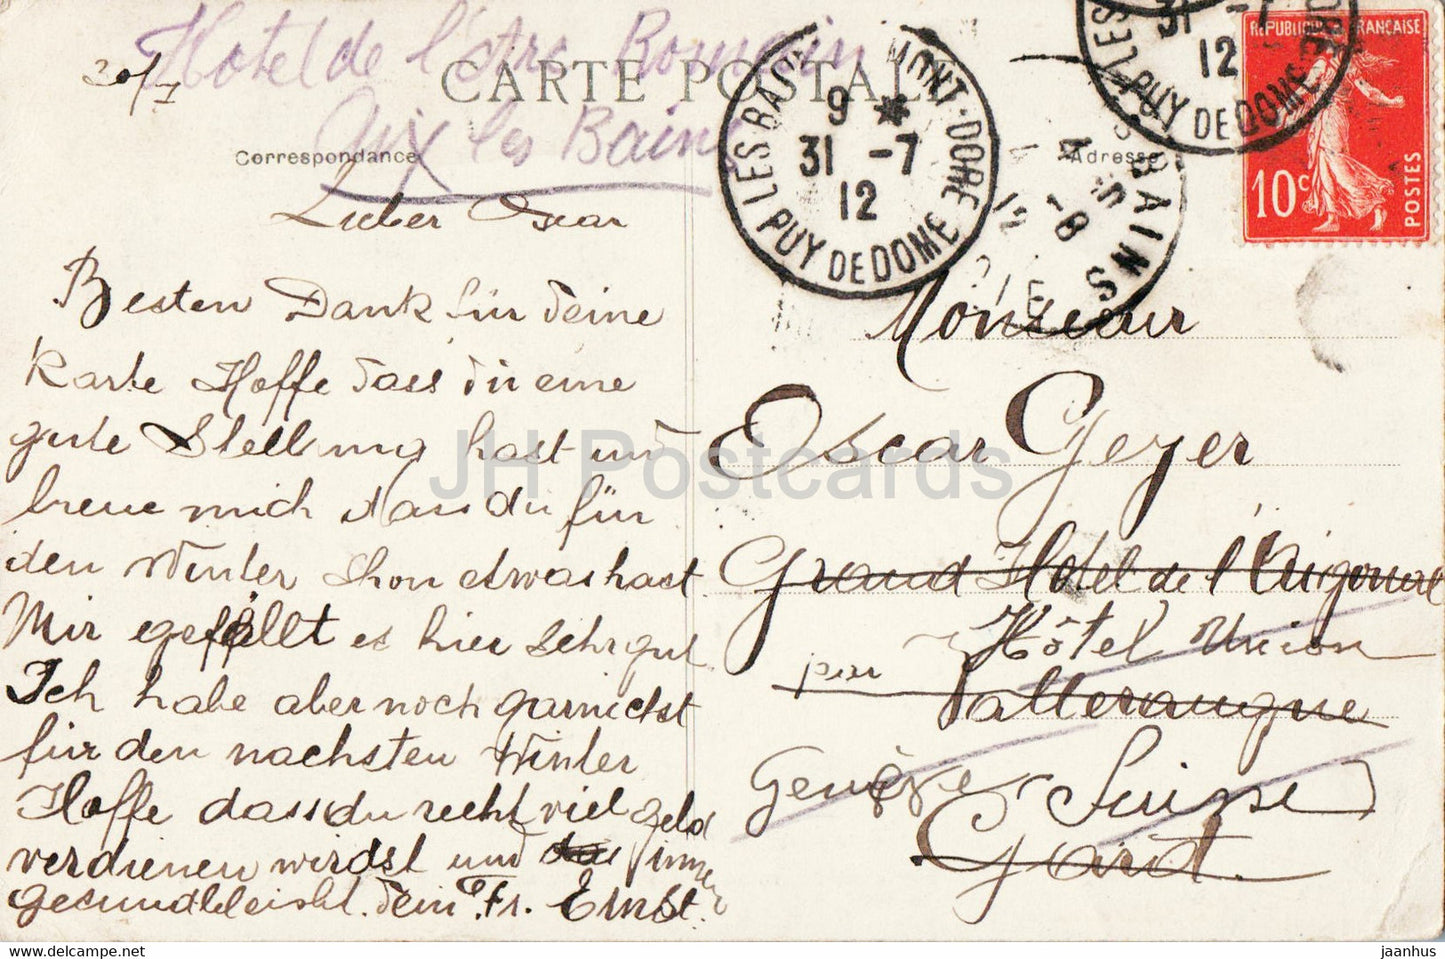 Hotel de l'Arc Romain
30/7
CARTE POSTALE
Aix les Bains
Correspondance
Adresse
Lieber Oscar
Besten Dank für Deine
Karte Hoffe dass du eine
gute Stellung hast und
freue mich dass du für
den Winter schon etwas hast
Mir egefällt es hier sehr gut
Ich habe aber noch garnichst
für den nachsten Winter
Hoffe dass du recht viel geld
verdienen wirdst und das immer
gesund bleibst. Dein Fr. Ernst.
MONT-DORE LES BAINS
9 *
31 -7
12
PUY DE DOME
31 -7
12
PUY DE DOME
BAINS
4
-8
12
REPUBLIQUE FRANÇAISE
10c
POSTES
Monsieur
Oscar Geyer
Grand Hotel de l'Aigoual
Hôtel Union
par Valleraugue
Genève Suisse
Gard.
JH Postcards
www.hippostcard.com/store/jh-postcards
jaanhus